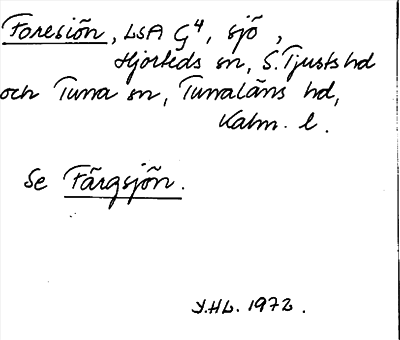 Foresiön, LSA G4, sjö,
Hjorteds sn, S. Tjusts hd
och Tuna sn, Tunaläns hd,
Kalm. l.
Se Färgsjön.
Y.HL. 1972.